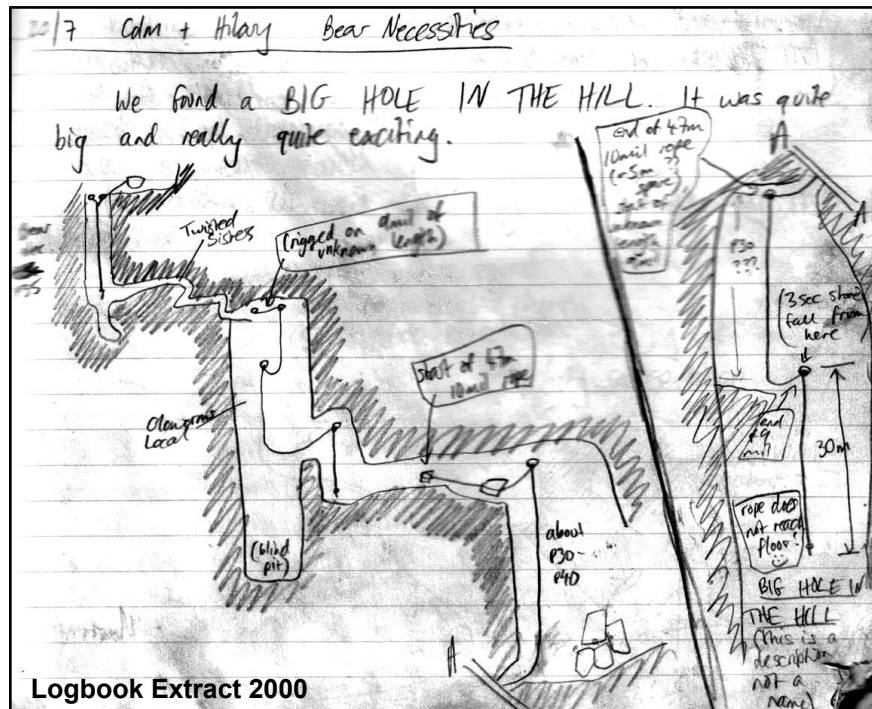 /7 Colm + Hilary Bear Necessities
We found a BIG HOLE IN THE HILL. It was quite
big and really quite exciting.
Twisted
Sisters
(rigged on 9mil of
unknown length)
Local
(blind
pit)
start of 47m
10mil rope
about
P30-
P40
A
end of 47m
10mil rope
(~5m
spare)
start of
unknown
length
A
A
P30
???
(3sec stone
fall from
here
end
of 9
mil
30m
rope does
not reach
floor!
BIG HOLE IN
THE HILL
(this is a
description
not a
name)
Logbook Extract 2000